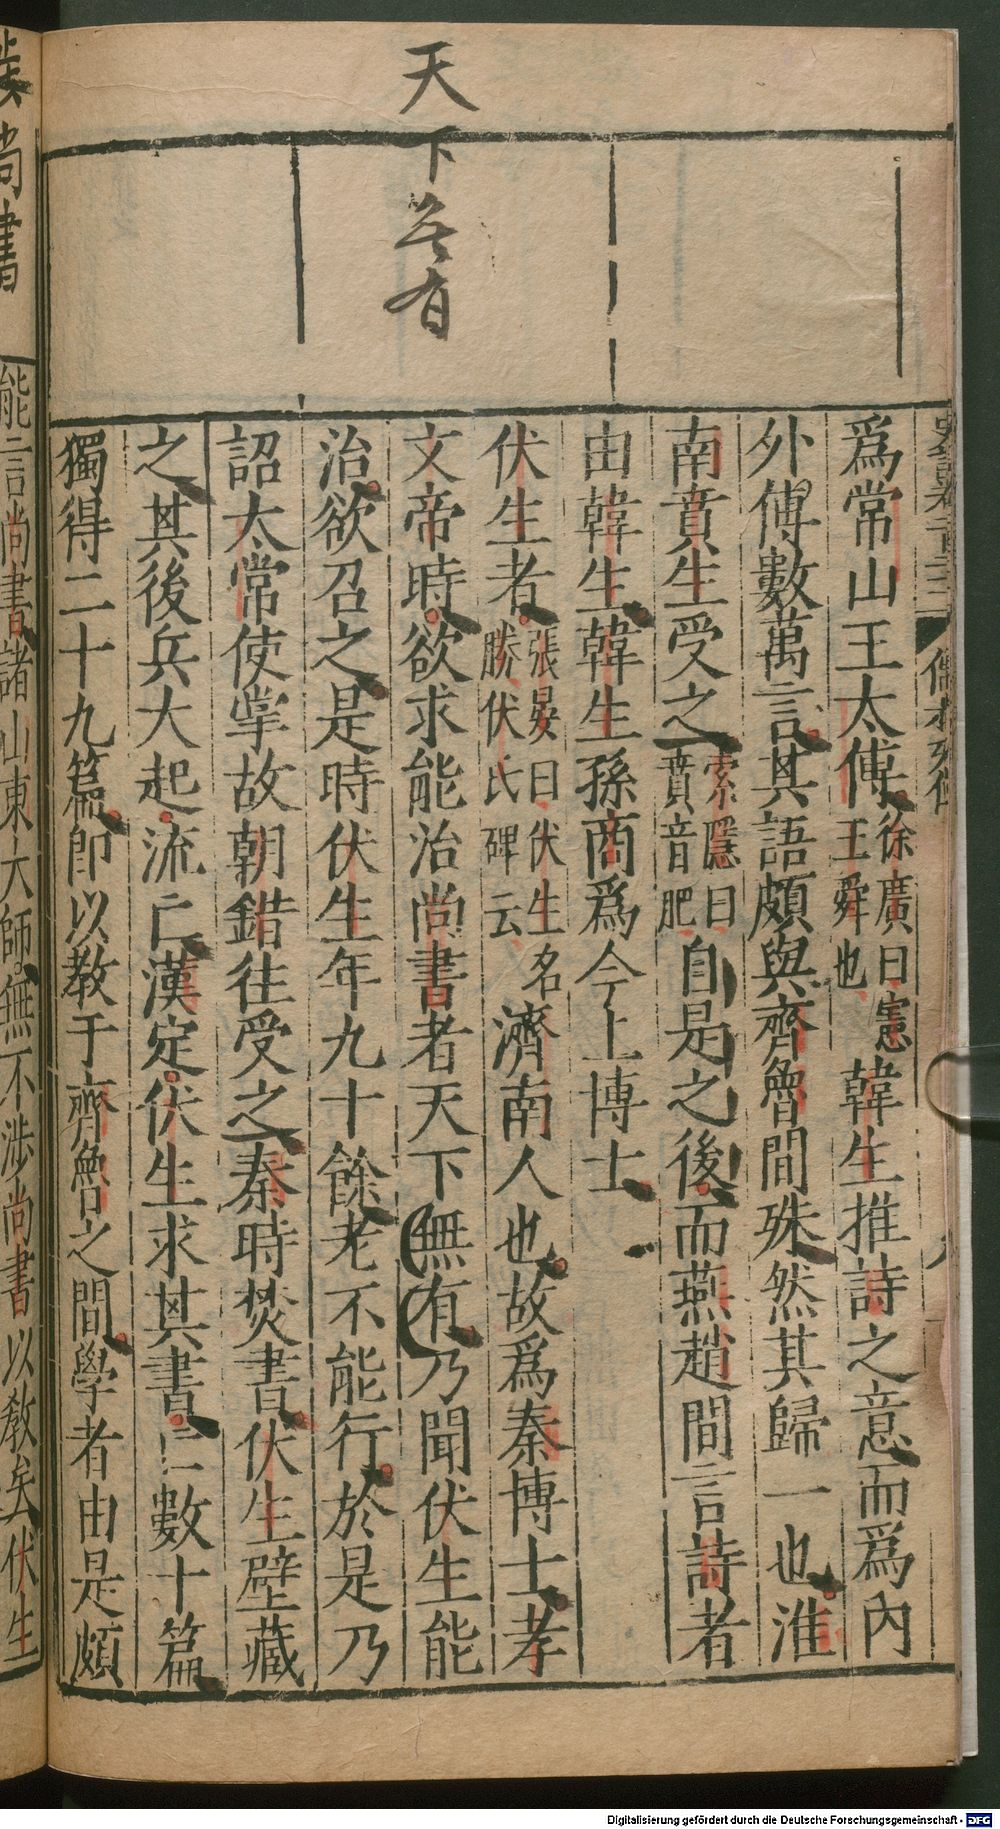 天下無有
爲常山王太傅徐廣曰憲王舜也韓生推詩之意而爲內
外傅數萬言其語頗與齊魯間殊然其歸一也淮
南賁生受之索隱曰賁音肥自是之後而燕趙間言詩者
由韓生韓生孫商爲今上博士
伏生者張晏曰伏生名勝伏氏碑云濟南人也故爲秦博士孝
文帝時欲求能治尚書者天下無有乃聞伏生能
治欲召之是時伏生年九十餘老不能行於是乃
詔太常使掌故朝錯往受之秦時焚書伏生壁藏
之其後兵大起流亡漢定伏生求其書亡數十篇
獨得二十九篇即以教于齊魯之間學者由是頗
尚書
能言尚書諸山東大師無不涉尚書以教矣伏生
Digitalisierung gefördert durch die Deutsche Forschungsgemeinschaft - DFG